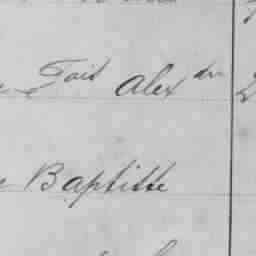 Tait Alexdr
Baptitte